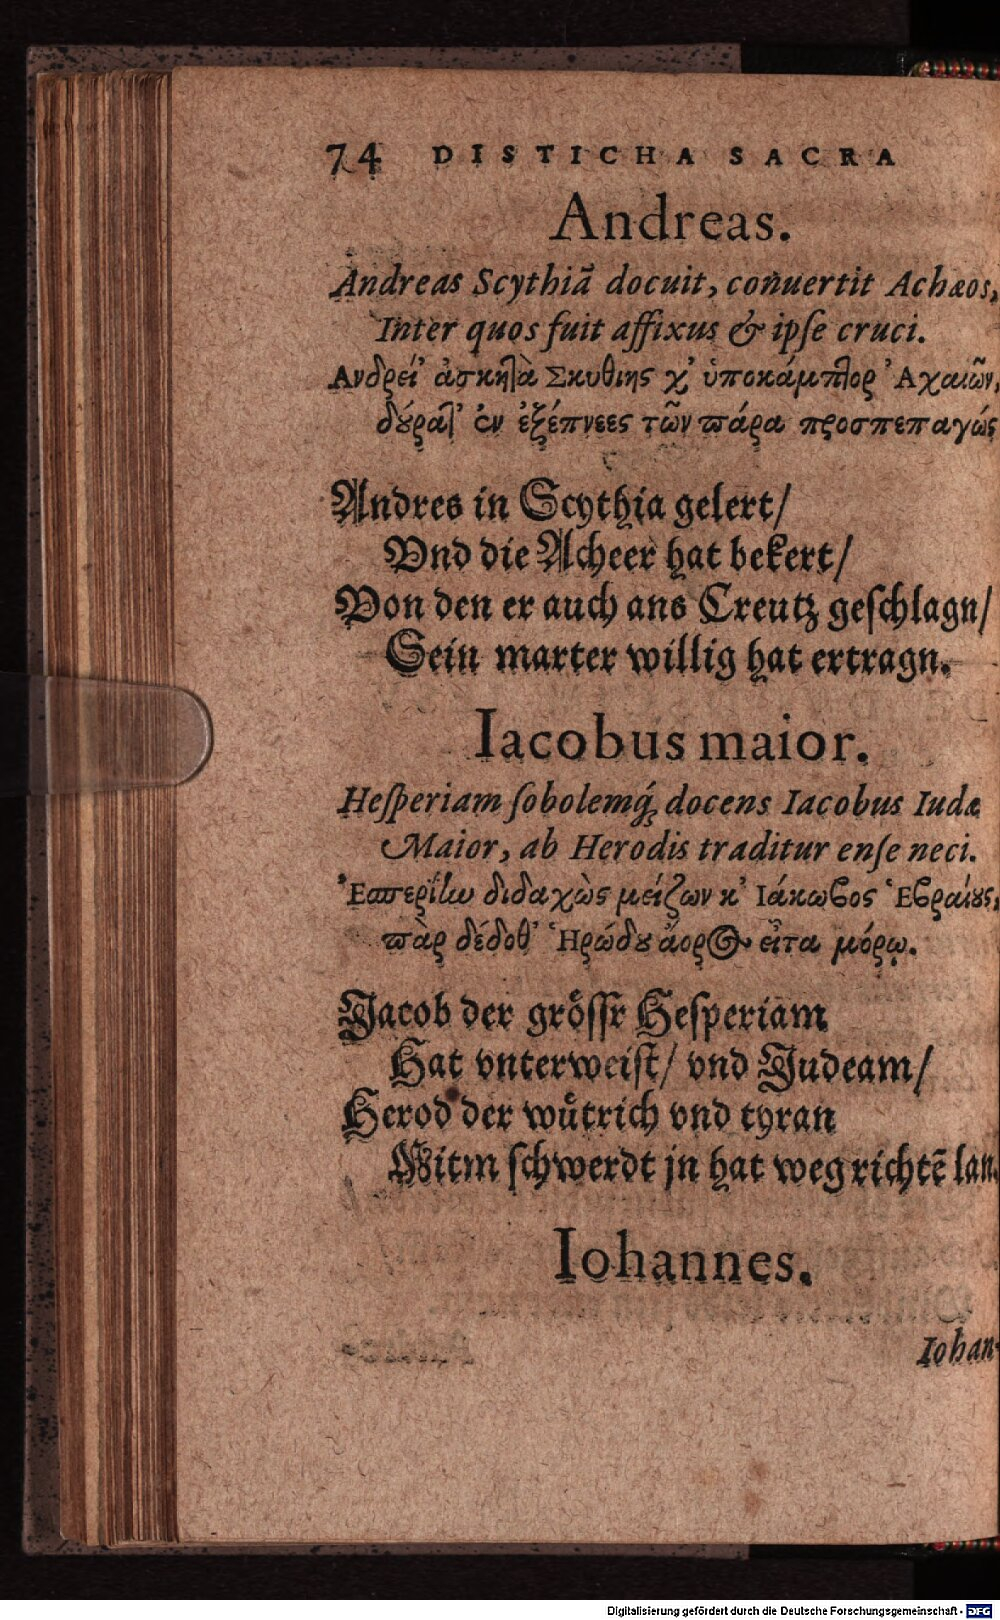 74 DISTICHA SACRA
Andreas.
Andreas Scythiā docuit, conuertit Achæos,
Inter quos fuit affixus & ipſe cruci.
Ανδρεί' ἀσκηlὰ Σκυθιης χ' ὑποκάμπlορ 'Αχαιῶν,
δȣ́ραl' ἐν ἐξέπνεες τῶν πάρα προσπεπαγώς
Andres in Scythia gelert/
Vnd die Acheer hat bekert/
Von den er auch ans Creutz geſchlagn/
Sein marter willig hat ertragn.
Iacobus maior.
Heſperiam ſobolemq́; docens Iacobus Iudæ
Maior, ab Herodis traditur enſe neci.
διδαχὼς μείζων κ' Ιάκωβος Ἑβραίȣς,
πὰρ δέδοθ' Ἡρώδȣ ἄορος εἶτα μόρῳ.
Jacob der gröſſr Heſperiam
Hat vnterweiſt/ vnd Judeam/
Herod der wütrich vnd tyran
Mitm ſchwerdt jn hat weg richtē lan.
Iohannes.
Iohan-
Digitalisierung gefördert durch die Deutsche Forschungsgemeinschaft - DFG